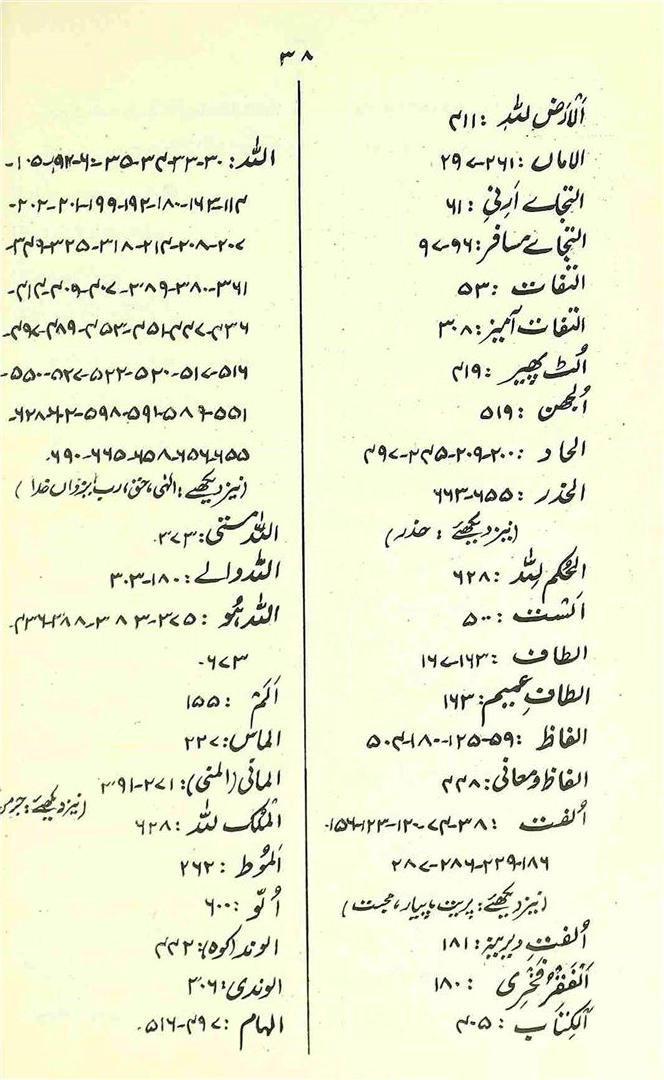 ۳۸
اَلْاَرَضْ لِلّٰہِ : ۴۱۱
الاماں : ۲۶۱-۲۹۷
التجاے اَرِنیِ : ۶۱
التجاے مسافر: ۹۶-۹۷
التفات : ۵۳
التفات آمیز: ۳۰۸
اُلٹ پھیر : ۴۱۹
اُلجھن : ۵۱۹
الحاد : ۲۰۰-۲۰۹-۲۴۵-۴۹۷
الحذر : ۶۵۵-۶۶۳
(نیز دیکھئے : حذر)
الحُکم لِلّٰہ : ۶۲۸
اَلَست : ۵۰۰
الطاف : ۱۶۳-۱۶۷
الطافِ عمیم: ۱۶۳
الفاظ : ۵۹-۱۲۵-۱۸۰-۵۰۴
الفاظ و معانی: ۴۴۸
اُلفت : ۳۸-۴۷-۱۲۰-۱۲۳-۱۵۶-
۱۸۶-۲۲۹-۲۸۶-۲۸۷
(نیز دیکھئے: پریت، پیار، محبت)
اُلفتِ دیرینہ : ۱۸۱
اَلْفَقْرُ فَخْرِی : ۱۸۰
اَلکِتاب : ۴۰۵
اللہ : ۳۰-۳۳-۳۴-۳۵-۶۰-۹۲-۱۰۵-
۱۱۴-۱۶۳-۱۸۰-۱۹۲-۱۹۹-۲۰۱-۲۰۲-
۲۰۷-۲۰۸-۲۱۴-۳۱۸-۳۲۵-۳۴۹-
۳۶۱-۳۸۰-۳۸۹-۴۰۷-۴۰۹-۴۱۴-
۴۳۶-۴۴۷-۴۵۱-۴۵۳-۴۸۹-۴۹۷-
۵۱۶-۵۱۷-۵۲۰-۵۲۲-۵۲۷-۵۵۰-
۵۵۱-۵۸۹-۵۹۱-۵۹۸-۶۰۲-۶۲۸-
۶۵۵-۶۵۶-۶۵۸-۶۶۵-۶۹۰-
(نیز دیکھئے : الٰہی، حق، رب، یزداں خدا)
اللہ مستی: ۳۷۳-
اللہ والے : ۱۸۰-۳۰۳
اللہ ہُو : ۲۷۵-۳۸۳-۳۸۸-۴۳۶-
۶۷۳-
اَلَمْ : ۱۵۵
الماس: ۲۲۷
المانی (المنی): ۲۷۱-۳۹۱
(نیز دیکھئے : جرمن
المُلک للہ : ۶۲۸
اَلمُوط : ۲۶۲
اُلّو : ۶۰۰
الوند (کوہ): ۴۴۲
الوندی: ۳۰۶
الہام : ۴۹۷-۵۱۶-